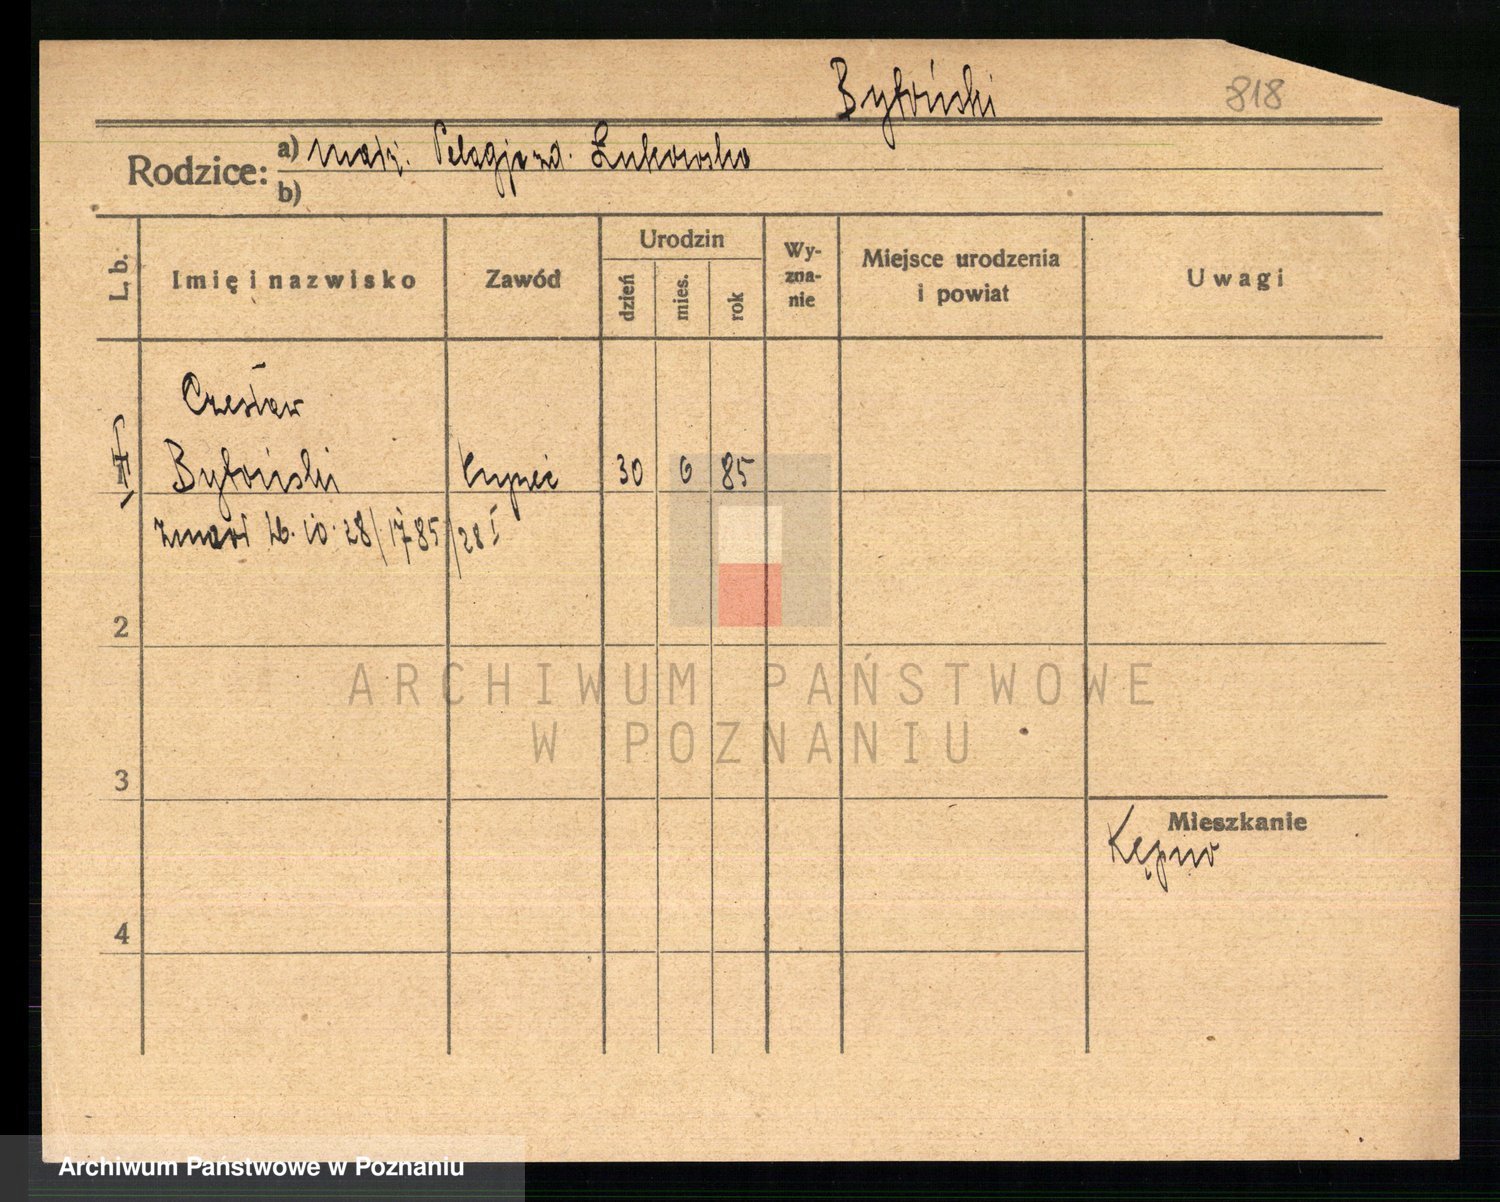 Byłoński 818
Rodzice: a) małż. Pelagja zd. Żukowska
b)
L. b. Imię i nazwisko Zawód Urodzin Wy-zna-nie Miejsce urodzenia i powiat Uwagi
dzień mies. rok
Czesław
Byłoński kupiec 30 6 85
zmarł 26. 10. 28/1785/28 I
2
3
Mieszkanie
Kępno
4
ARCHIWUM PAŃSTWOWE
W POZNANIU
Archiwum Państwowe w Poznaniu